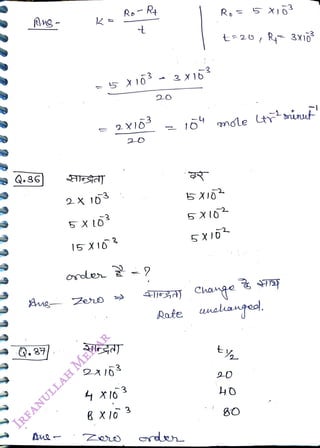 Ans- K = R₀ - Rₜ / t
R₀ = 5 × 10⁻³
t = 20, Rₜ = 3×10⁻³
= 5 × 10⁻³ - 3 × 10⁻³ / 20
= 2×10⁻³ / 20 = 10⁻⁴ mole Ltr⁻¹ minut⁻¹
Q.36 सान्द्रता दर
2 × 10⁻³ 5 × 10⁻²
5 × 10⁻³ 5 × 10⁻²
15 × 10⁻³ 5 × 10⁻²
order है - ?
Ans- Zero ⇒ सान्द्रता change के साथ
Rate unchanged.
Q.37 सान्द्रता t½
2×10⁻³ 20
4 ×10⁻³ 40
8 × 10⁻³ 80
Ans- Zero order
IRFANULLAH MEKAR